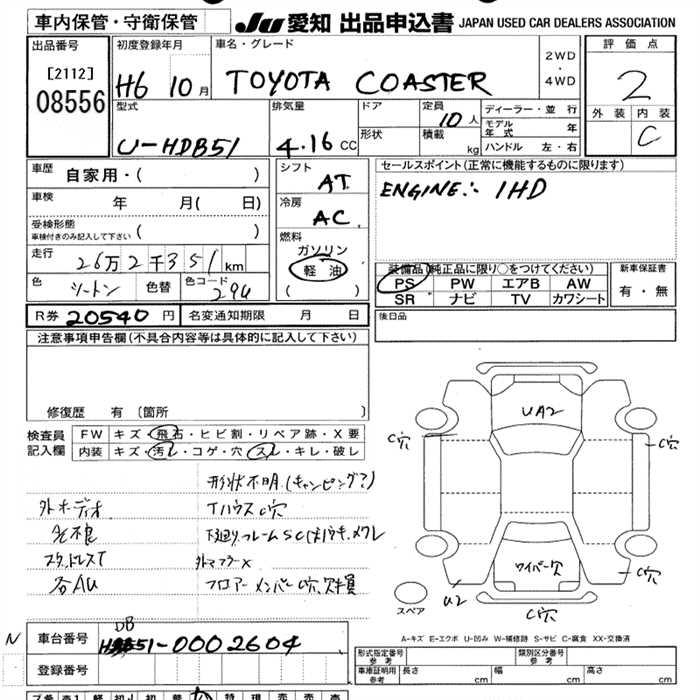 車内保管・守衛保管
JU 愛知 出品申込書 JAPAN USED CAR DEALERS ASSOCIATION
出品番号
[2112]
08556
初度登録年月
H6 10月
車名・グレード
TOYOTA COASTER
2WD
・
4WD
評価点
2
外装 内装
C
型式
U-HDB51
排気量
4.16 CC
ドア
形状
定員
10人
積載
kg
ディーラー・並行
モデル年式 年
ハンドル 左・右
車歴
自家用・( )
車検
年 月( 日)
受検形態
車検付きのみ記入して下さい ( )
走行
26万2千351km
色
ツートン
色替
色コード
294
シフト
AT
冷房
AC
燃料
ガソリン
軽油
( )
セールスポイント(正常に機能するものに限ります)
ENGINE: 1HD
装備品(純正品に限り○をつけてください)
PS PW エアB AW
SR ナビ TV カワシート
新車保証書
有・無
R券 20540 円
名変通知期限 月 日
後日品
注意事項申告欄(不具合内容等は具体的に記入して下さい)
修復歴 有 〔箇所 〕
検査員
記入欄
FW キズ・飛石・ヒビ割・リペア跡・X要
内装 キズ・汚レ・コゲ・穴・スレ・キレ・破レ
形状不明(キャンピング?)
外オーディオ
Tハウス C穴
下廻り、フレームSC
スタッドレスT
外マフラーX
各AU
フロアーメンバーC穴、欠品
UA2
C穴
C穴
ワイパー穴
C穴
U2
C穴
スペア
A-キズ E-エクボ U-凹み W-補修跡 S-サビ C-腐食 XX-交換済
N
車台番号
DB
51-0002604
登録番号
形式指定番号
参考
類別区分番号
参考
車庫証明用
参考
長さ cm
幅 cm
高さ cm